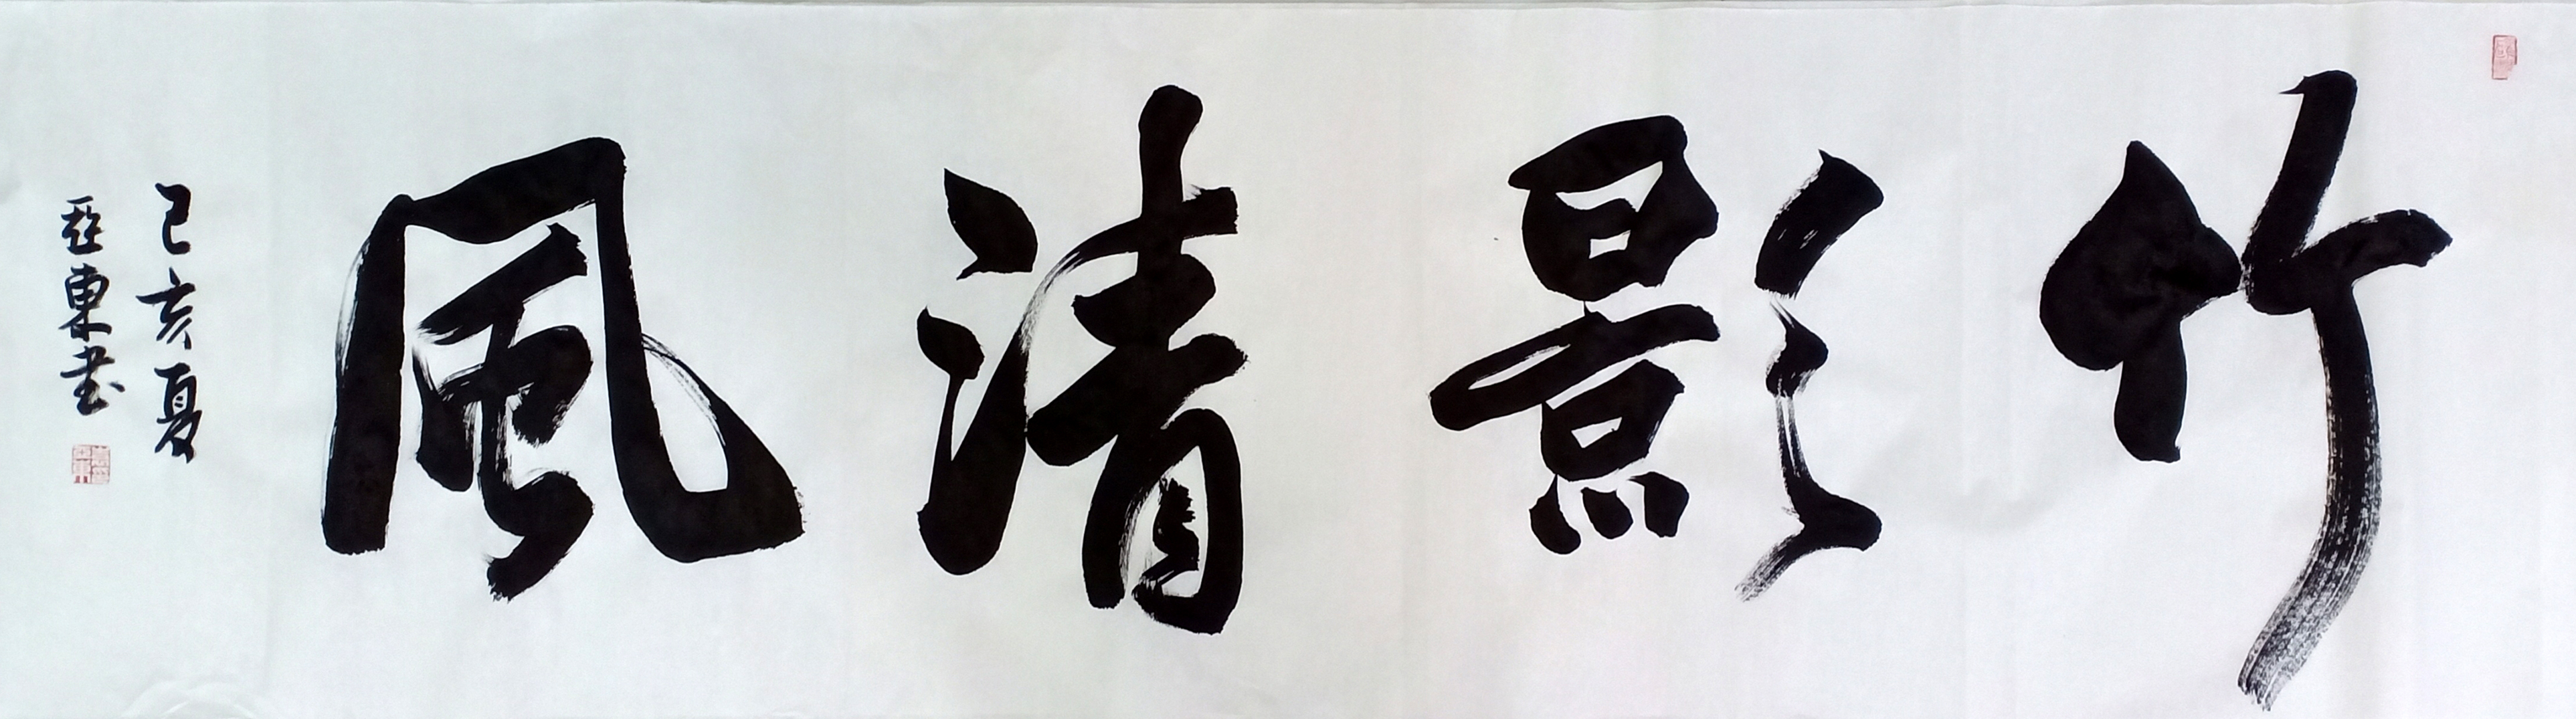 竹影清風
己亥夏
亞東書